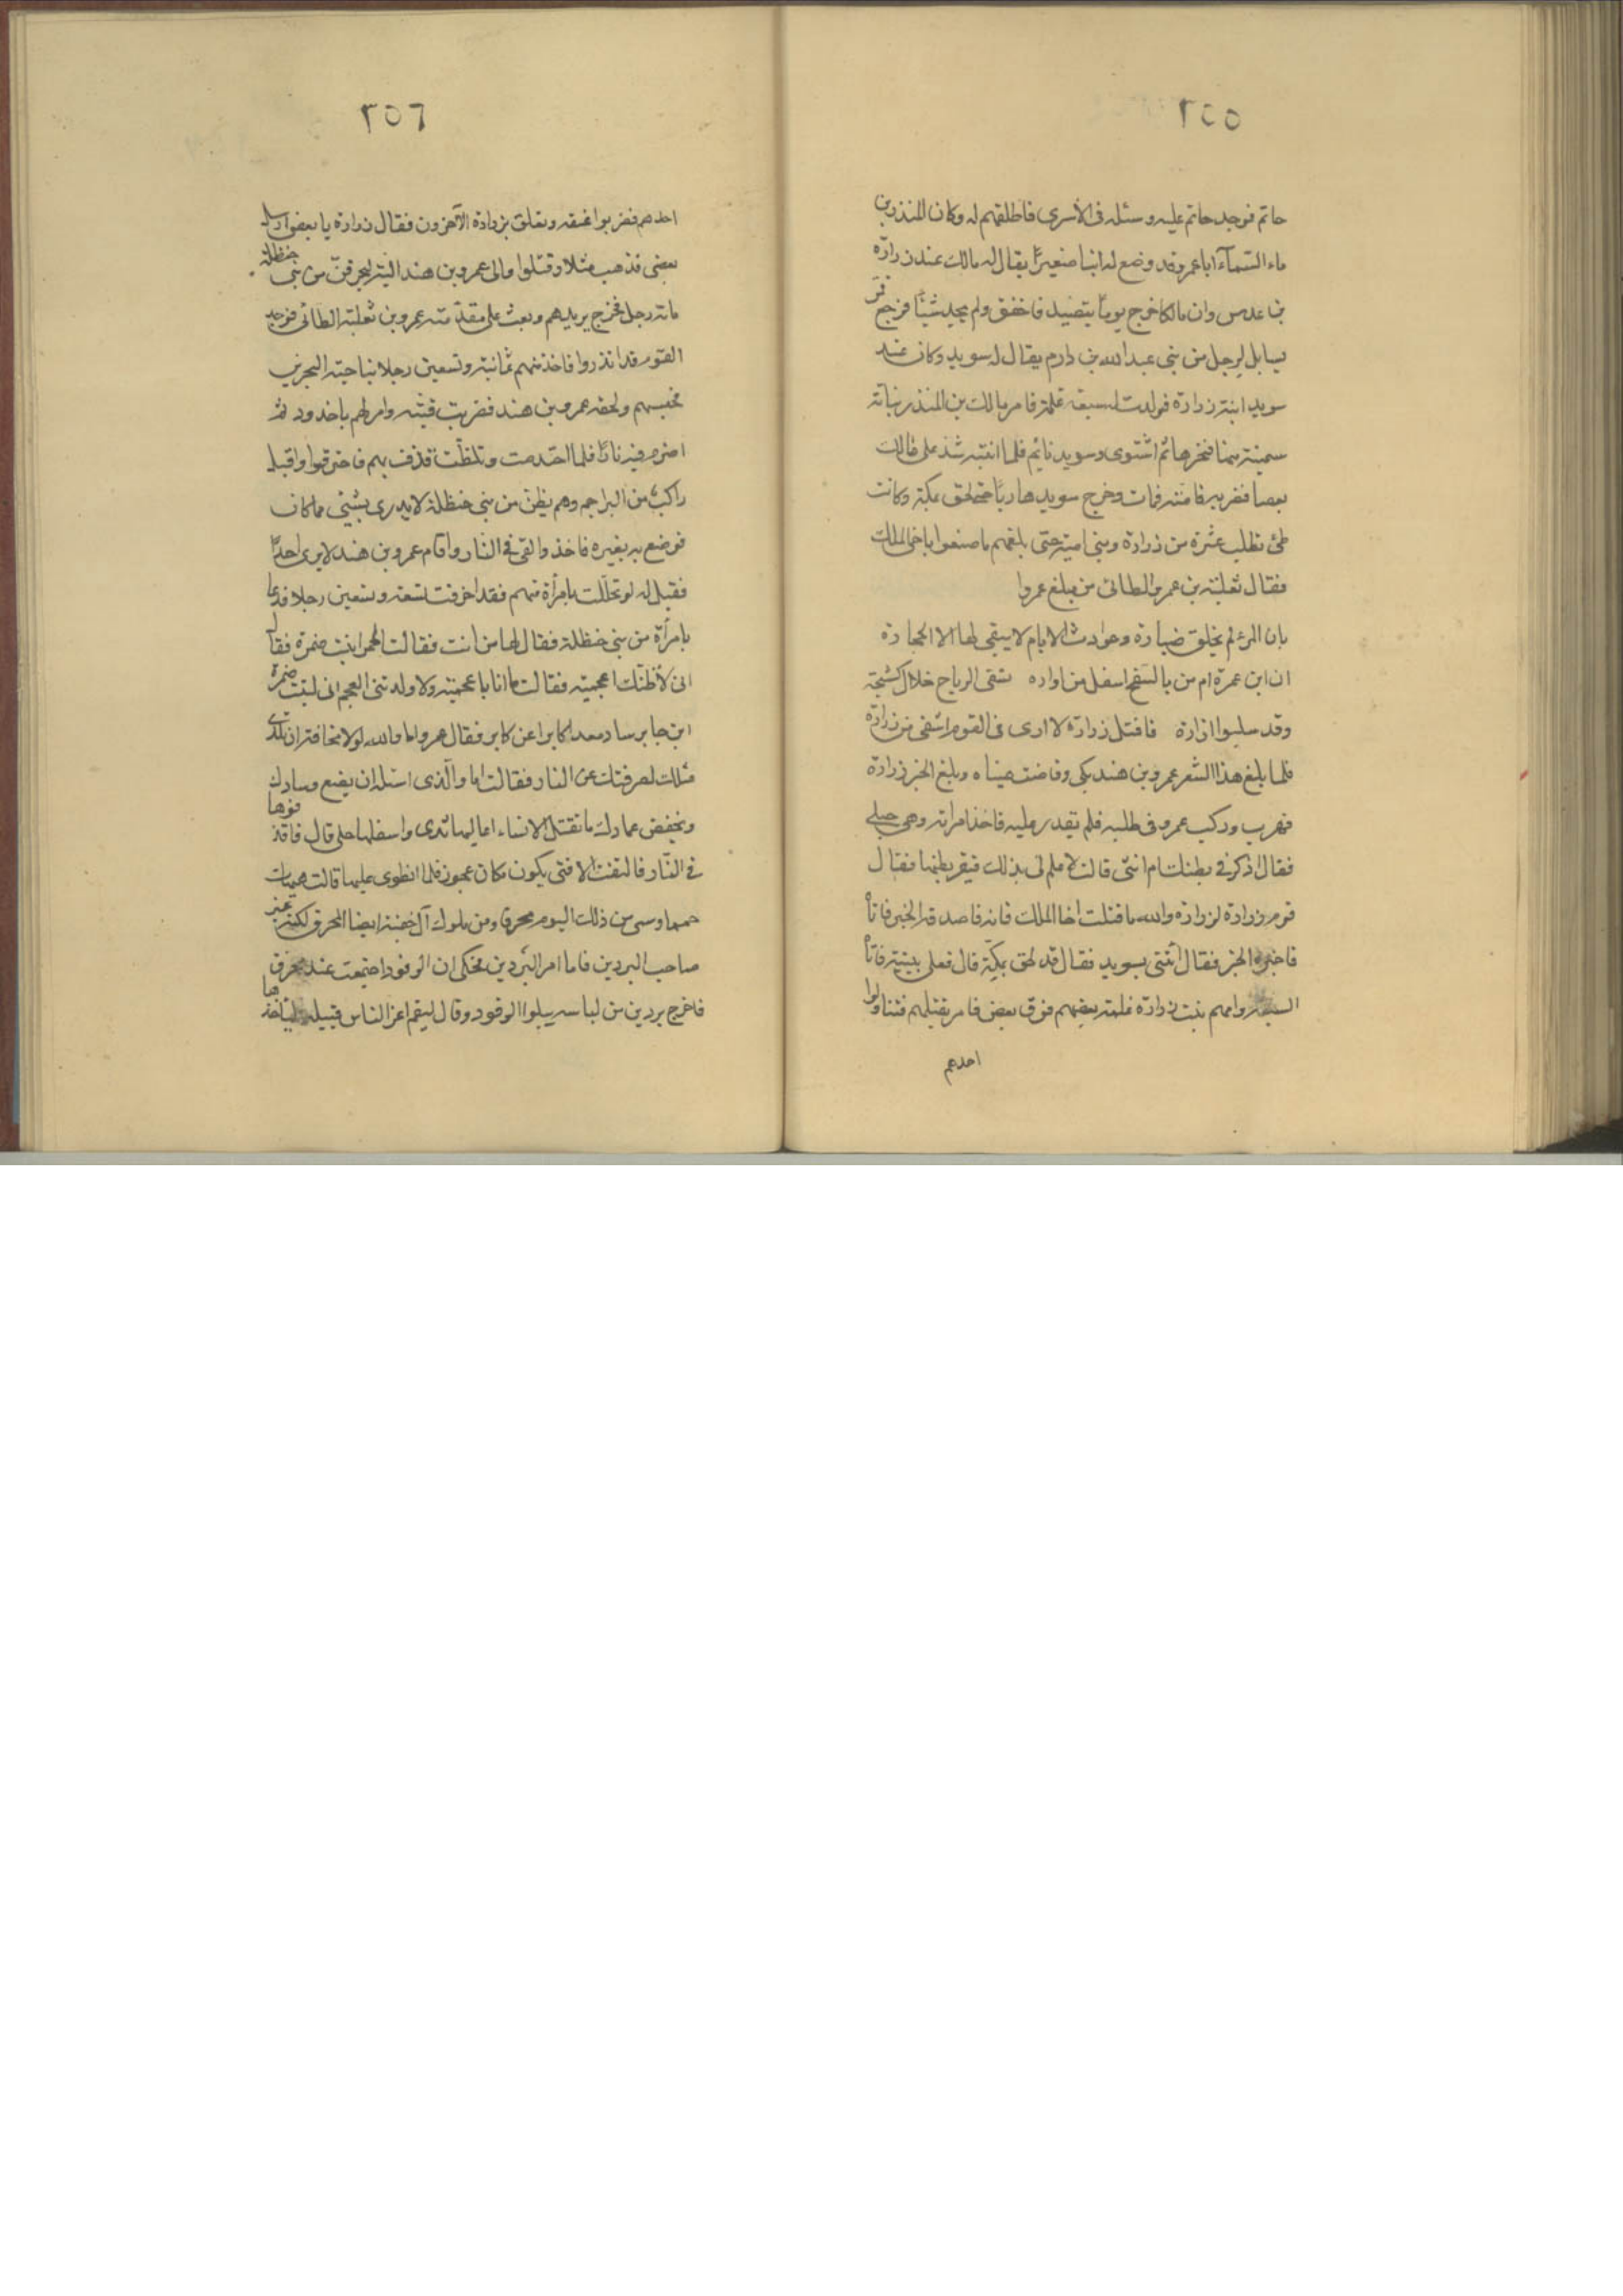 ٢٥٥
حاتم فوجد حاتم عليه وسئله فى الأسرى فاطلقهم له وكان المنذر بن
ماء السّمآء اباعمرو قد وضع له ابنا صغيرًا يقال له مالك عند زرارة
بن عدس وان مالكا خرج يومًا يتصيد فاخفق ولم يجد شيئًا فرجع فمر
بابل لرجل من بنى عبدالله بن دارم يقال له سويد وكان عند
سويد ابنة زرارة فولدت له سبعة غلمة فامر مالك بن المنذر بناقة
سمينة منها فنحرها ثم اشتوى وسويد نائم فلما انتبه شد على مالك
بعصا فضربه فامته فمات وخرج سويد هاربًا حتى لحق بمكة وكانت
طئ تطلب عثرة من زرارة وبنى ابيه حتى بلغهم ما صنعوا باخى الملك
فقال ثعلبة بن عمرو الطائى من مبلغ عمروا
بان المرء لم يخلق ضبارة وحوادث الايام لا يبقى لها الا الحجارة
ان ابن عمرة ام من بالسّفح اسفل من اواره تسقى الرياح خلال كشحيه
وقد سلبوا ازارة فاقتل زرارة لا ارى فى القوم اشفى من زرارة
فلما بلغ هذا الشعر عمرو بن هند بكى وفاضت عيناه وبلغ الخبر زرارة
فهرب وركب عمرو فى طلبه فلم يقدر عليه فاخذ امراته وهى حبلى
فقال اذكر فى بطنك ام انثى قالت لا علم لى بذلك فبقر بطنها فقال
قوم زرارة لزرارة والله ما قتلت اخا الملك فاته فاصدقه الخبر فاتاه
فاخبره الخبر فقال ائتنى بسويد فقال قد لحق بمكة قال فعلى ببنيه فاتاه
السبعة وامهم بنت زرارة غلمة بعضهم فوق بعض فامر بقتلهم فتناولوا
احدهم
٢٥٦
احدهم فضربوا عنقه وتعلق بزرارة الآخرون فقال زرارة يا بعضى ارسل
بعضى فذهب مثلا وقتلوا والى عمرو بن هند اليّة ليحرقنّ من بنى حنظلة
مائة رجل فخرج يريدهم وبعث على مقدّمته عمرو بن ثعلبة الطائى فوجد
القوم قد انذروا فاخذ منهم ثمانية وتسعين رجلا بناحية البحرين
فحبسهم ولحقه عمرو بن هند فضربت قبته وامر لهم باخدود ثم
اضرم فيه نارًا فلما احتدمت وتلظّت قذف بهم فاحترقوا واقبل
راكب من البراجم وهم بطن من بنى حنظلة لا يدرى بشئى مما كان
فوضع به بعيره فاخذ والقى فى النار واقام عمرو بن هند لا يرى احدًا
فقيل له لو تحللت بامرأة منهم فقد احرقت تسعة وتسعين رجلا فدعا
بامرأة من بنى حنظلة فقال لها من انت فقالت الحمرا بنت ضمرة فقال
انى لأظنك اعجمية فقالت ما انا باعجمية ولا ولدتنى العجم انى لبنت ضمرة
ابن جابر ساد معدا كابرا عن كابر فقال عمرو اما والله لولا مخافة ان تلدى
مثلك لصرفتك عن النار فقالت اما والّذى اسئله ان يضع وسادك
ويخفض عمادك ما تقتل الا نساء اعاليها ثدى واسفلها حلى قال فاقذفوها
فى النّار فالتفتت الا فتى يكون مكان عجوز فلما ابطوى عليها قالت هيهات
حمما وسمى من ذلك اليوم محرقا ومن ملوك آل جفنة ايضا المحرق لكنه غير
صاحب البردين فاما امر البردين فحكى ان الوفود اجتمعت عند محرق
فاخرج بردين من لباسه يبلوا الوفود وقال ليقم اعز الناس قبيلة فليأخذهما